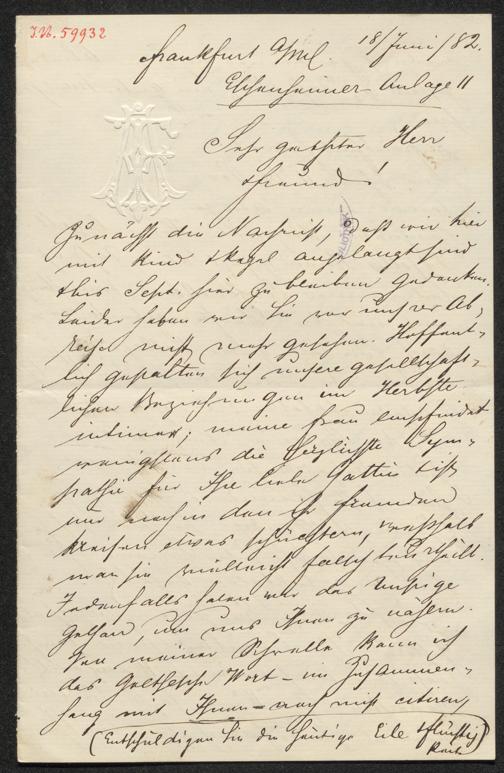 I.N. 59932
Frankfurt a/M. 18/Juni/82.
Eschenheimer Anlage 11
Sehr geehrter Herr
Freund!
Zunächst die Nachricht, daß wir hier
mit Kind & Kegel angelangt sind
& bis Sept. hier zu bleiben gedenken.
Leider haben wir Sie vor unsrer Ab-
reise nicht mehr gesehen. Hoffent-
lich gestalten sich unsere gesellschaft-
lichen Beziehungen im Herbste
intimer; meine Frau empfindet
wenigstens die herzlichste Sym-
pathie für Ihre liebe Gattin & ist
nur noch in den ihr fremden
Kreisen etwas schüchtern, weßhalb
man sie vielleicht falsch beurtheilt.
Jedenfalls haben wir das Unsrige
gethan, um uns Ihnen zu nähern.
Von meiner Schwelle kann ich
das Goethesche Wort – im Zusammen-
hang mit Ihnen – noch nicht citiren,
(Entschuldigen Sie die heutige Eile & flüchtig